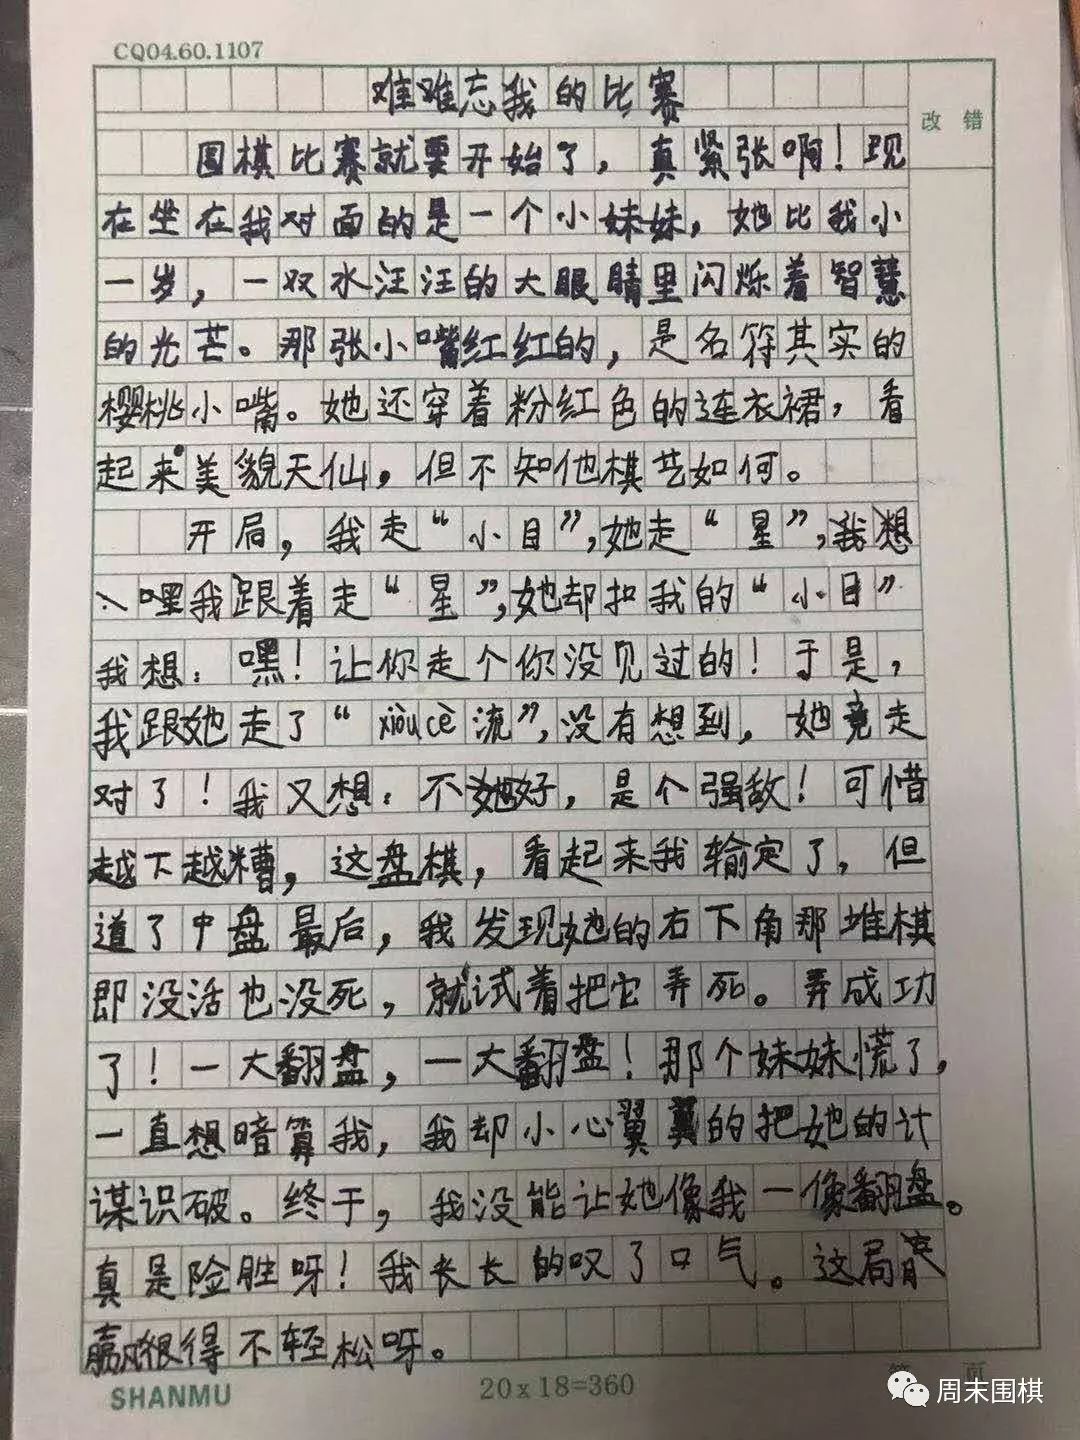 CQ04.60.1107
难难忘我的比赛
改 错
围棋比赛就要开始了，真紧张啊！现
在坐在我对面的是一个小妹妹，她比我小
一岁，一双水汪汪的大眼睛里闪烁着智慧
的光芒。那张小嘴红红的，是名符其实的
樱桃小嘴。她还穿着粉红色的连衣裙，看
起来美貌天仙，但不知他棋艺如何。
开局，我走“小目”，她走“星”，我想
、嘿我跟着走“星”，她却扣我的“小目”
我想：嘿！让你走个你没见过的！于是，
我跟她走了“xiǎucè流”，没有想到，她竟走
对了！我又想：不她好，是个强敌！可惜
越下越糟，这盘棋，看起来我输定了，但
道了中盘最后，我发现她的右下角那堆棋
即没活也没死，就试着把它弄死。弄成功
了！一大翻盘，一大翻盘！那个妹妹慌了，
一直想暗算我，我却小心翼翼的把她的计
谋识破。终于，我没能让她像我一像翻盘。
真是险胜呀！我长长的叹了口气。这局
赢很得不轻松呀。
SHANMU
20x18=360
第 页
周末围棋